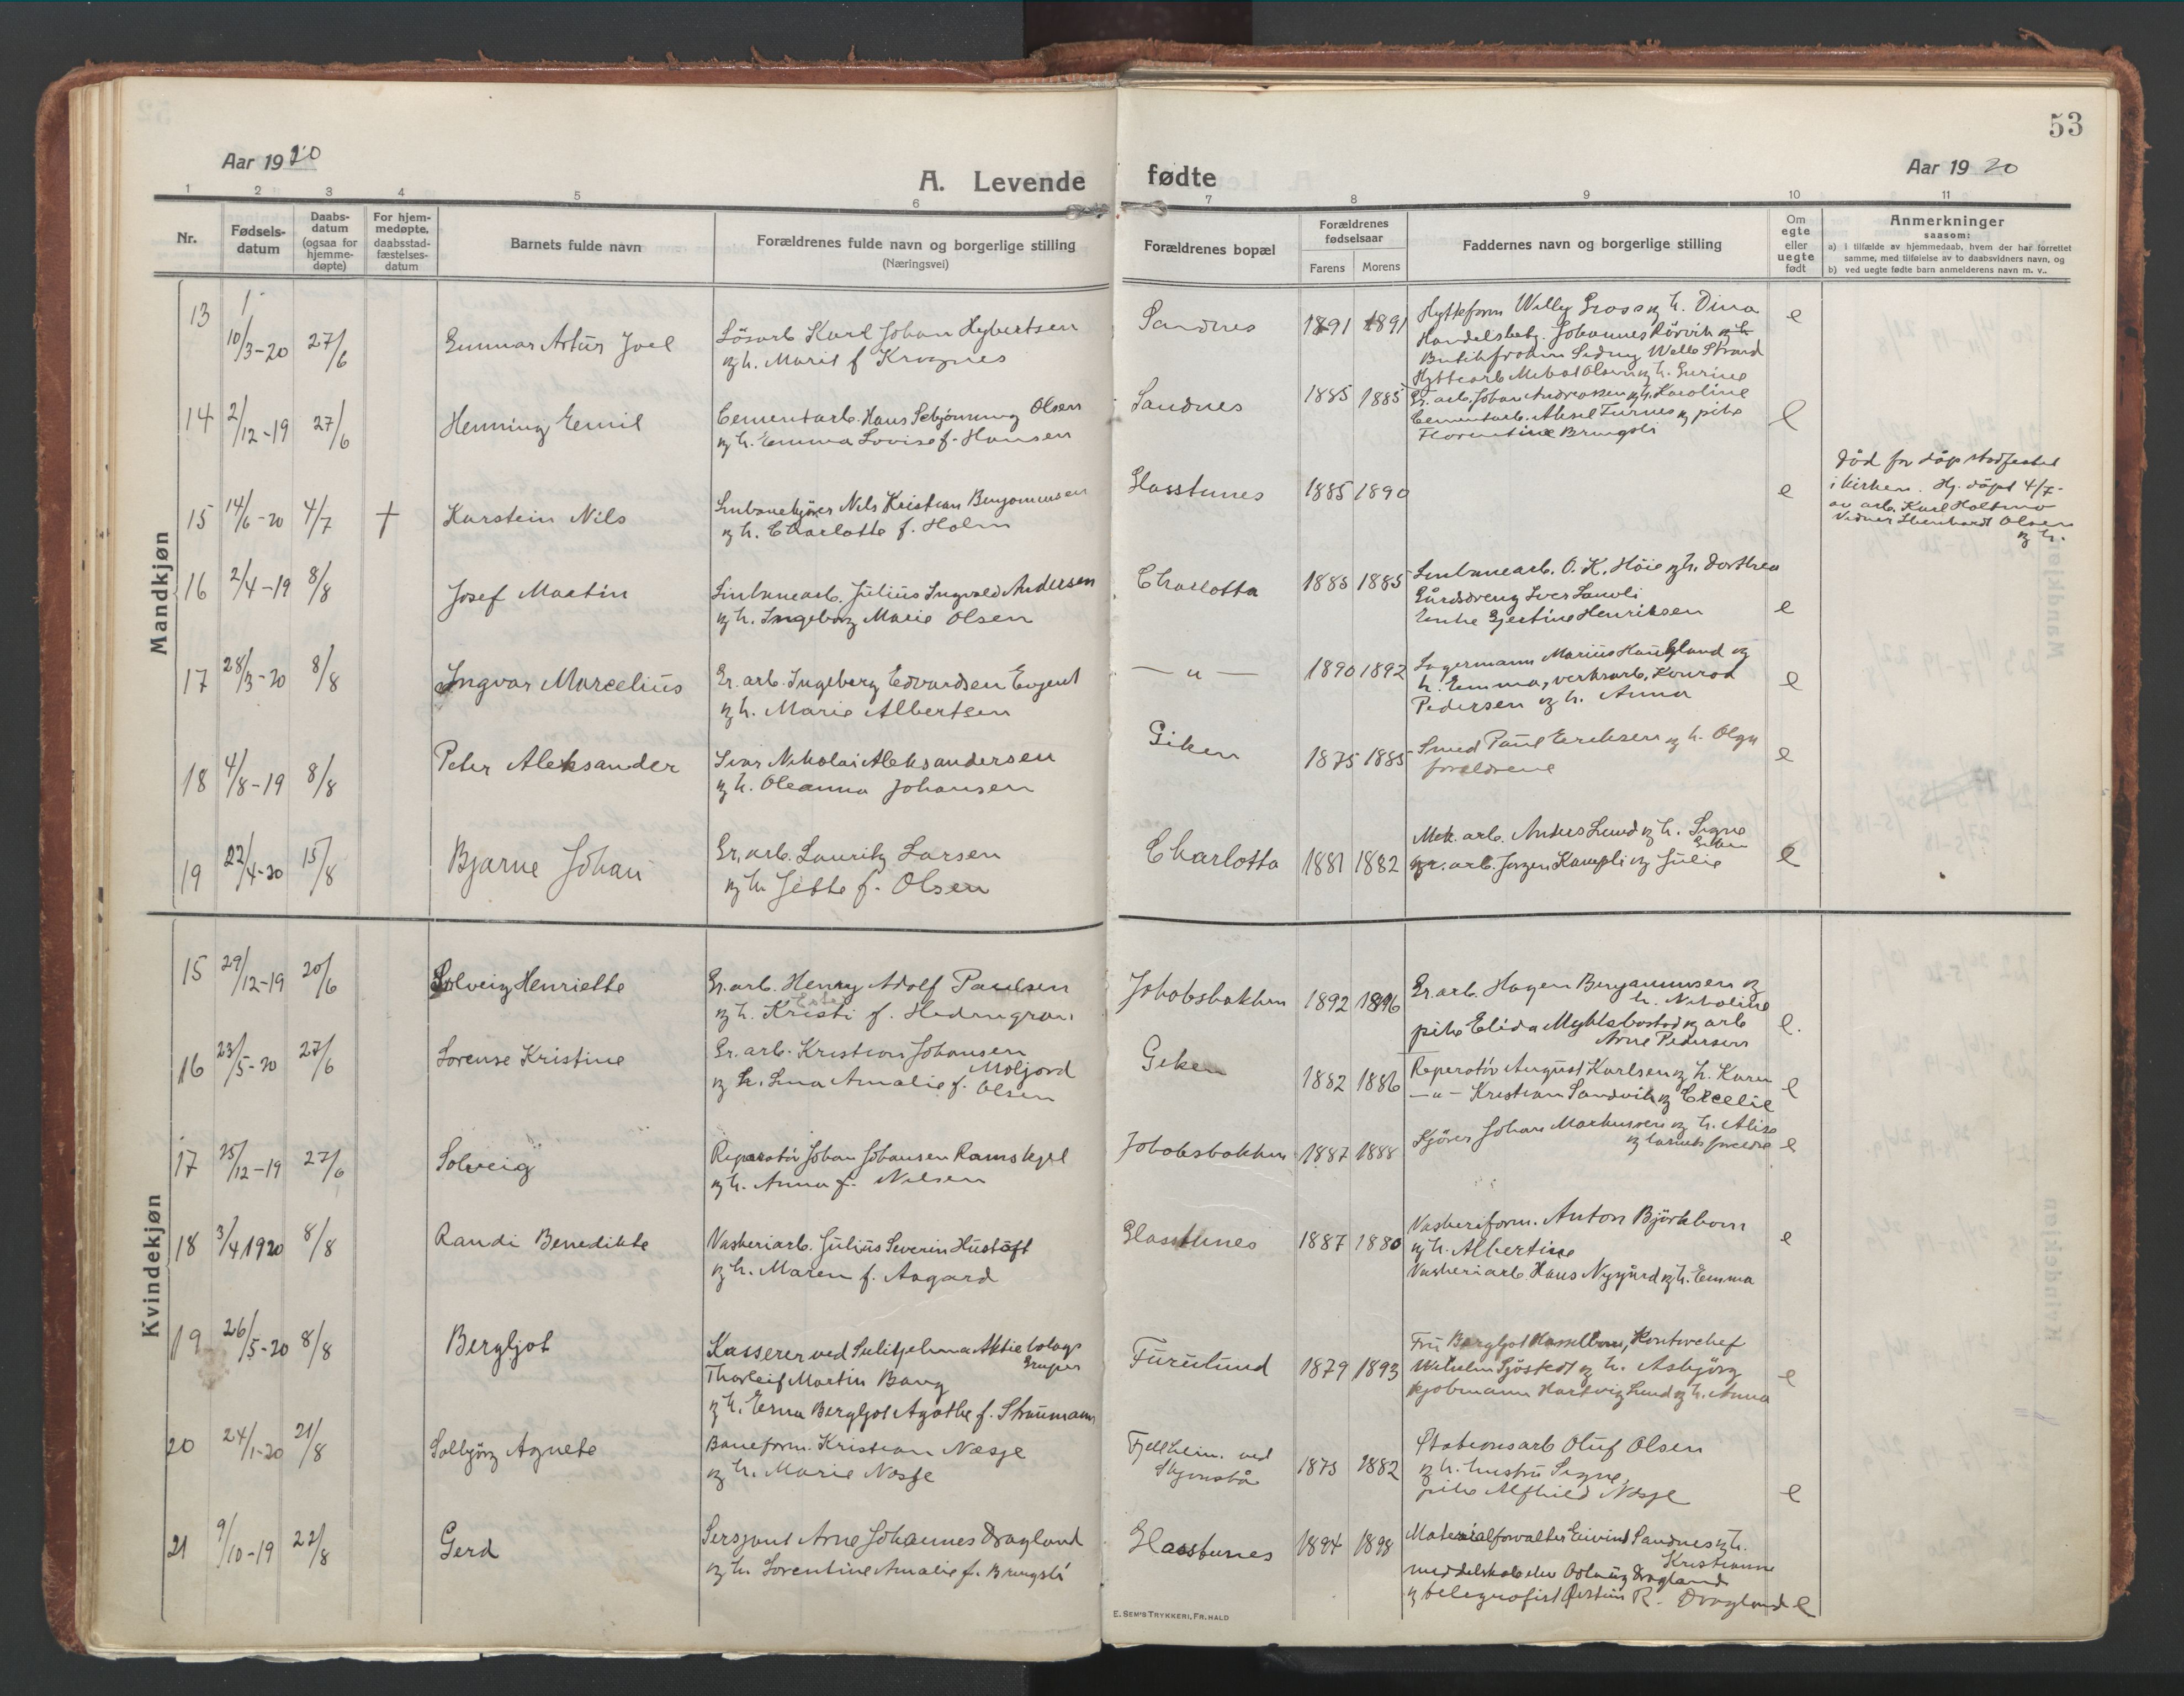 53
Aar 1920
A. Levende fødte
Aar 1920
1 2 3 4 5 6 7 8 9 10 11
Nr.
Fødsels-
datum
Daabs-
datum
(ogsaa for
hjemme-
døpte)
For hjem-
medøpte.
daabsstad-
fæstelses-
datum
Barnets fulde navn
Forældrenes fulde navn og borgerlige stilling
(Næringsvei)
Forældrenes bopæl
Forældrenes
fødselsaar
Farens Morens
Faddernes navn og borgerlige stilling
Om
egte
eller
uegte
født
Anmerkninger
saasom:
a) i tilfælde av hjemmedaab, hvem der har forrettet
samme, med tilføielse av to daabsvidners navn, og
b) ved uegte fødte barn anmelderens navn m. v..
Mandkjøn
13 10/3-20 27/6 Gunnar Artur Joel
Lösarb. Karl Johan Hybertsen
og h. Marit f. Krognes
Sandnes 1891 1891
Hytteform Willy Gross og h. Dina
Handelsbetj. Johannes Rörvik og h
Hyttearb. Mikal Olsen og h. Gurine
e
14 2/12-19 27/6 Henning Emil
Cementarb. Hans Schjönning Olsen
og h. Emma Lovise f. Hansen
Sandnes 1885 1885
Gr. arb. Johan Andreassen og h. Karoline
Cementarb. Aksel Furnes og pike
Florentine Brungsli
e
15 14/6-20 4/7 † Karstein Nils
Linbanekjörer Nils Kristian Benjaminsen
og h. Charlotte f. Holm
Glasstunes 1885 1890 e
Död før dåp stadfestet
i kirken. Hj. döpt 4/7-
av arb. Karl Holtmo
Vidner Olsen
og h.
16 2/4-19 8/8 Josef Martin
Linbanearb. Julius Ingvald Andersen
og h. Ingeborg Marie Olsen
Charlotta 1885 1885
Linbanearb. O. K. Höie og h. Dorthea
Gårdsdreng Iver
Enke Gjertine Henriksen
e
17 28/3-20 8/8 Ingvar Marcelius
Gr. arb. Ingeberg Edvardsen Evjent
og h. Marie Albertsen
— " — 1890 1892
Lagermann Marius Haugland og
h. Emma, verksarb. Konrad
Pedersen og h. Anna
e
18 4/8-19 8/8 Peter Aleksander
Ivar Nikolai Aleksandersen
og h. Oleanna Johansen
Giken 1875 1885
Smed Paul Eriksen og h. Olga
foreldrene
e
19 22/4-20 15/8 Bjarne Johan
Gr. arb. Lauritz Larsen
og h Jette f. Olsen
Charlotta 1881 1882
Mek. arb. Anders Lund og h. Signe
gr. arb. Jorgen Kampli og Julie
e
Kvindekjøn
15 29/12-19 20/6 Solveig Henriette
Gr. arb. Henry Adolf Paulsen
og h. Kristi f.
Jakobsbakken 1892 1896
Gr. arb. Hagen Benjaminsen og
h. Nikoline
pike Elida Myklebostad og arb
Arne Pedersen
e.
16 23/5-20 27/6 Lorense Kristine
Gr. arb. Kristian Johansen
Moljord
og h. Lina Amalie f. Olsen
Giken 1882 1886
Reperatör August Karlsen og h. Karen
— " — Kristian Sandvik og
e
17 25/12-19 27/6 Solveig
Reperatör Johan Johansen Ramskjel
og h. Anna f. Nilsen
Jakobsbakken 1887 1888
Kjörer Johan Markussen og h. Alise
og barnets foreldre
e
18 3/4 1920 8/8 Randi Benedikte
Vaskeriarb. Julius Severin Hustoft
og h. Maren f. Aagard
Glasstunes 1887 1880
Vaskeriform. Anton Björkbom
og h. Albertine
Vaskeriarb. Hans Nygård og h. Emma
e
19 26/5-20 8/8 Bergljot
Kasserer ved Sulitjelma Aktiebolags
Gruber
Thorleif Martin Bang
og h. Erna Bergljot Agathe f. Straumann
Furulund 1879 1893
Fru Bergljot Hasselbom, Kontorchef
Wilhelm Sjöstedt og h. Asbjörg
kjøbmann Hartvig Lund og h. Anna
e
20 24/1-20 21/8 Solbjörg Agnete
Baneform. Kristian Næsje
og h. Marie Næsje
Fjellheim. ved
Skjønstå
1875 1882
Stationsarb Oluf Olsen
og h. hustru Signe,
pike Alfhild Næsje
e
21 9/10-19 22/8 Gerd
Sersjant Arne Johannes Dragland
og h. Lorentine Amalie f. Brungsli
Glasstunes 1894 1898
Materialforvalter Eivind Sandnes og h.
Kristianne
middelskoleelev Aslaug Dragland
og telegrafist R. Dragland
e
E. SEM'S TRYKKERI, FR.HALD